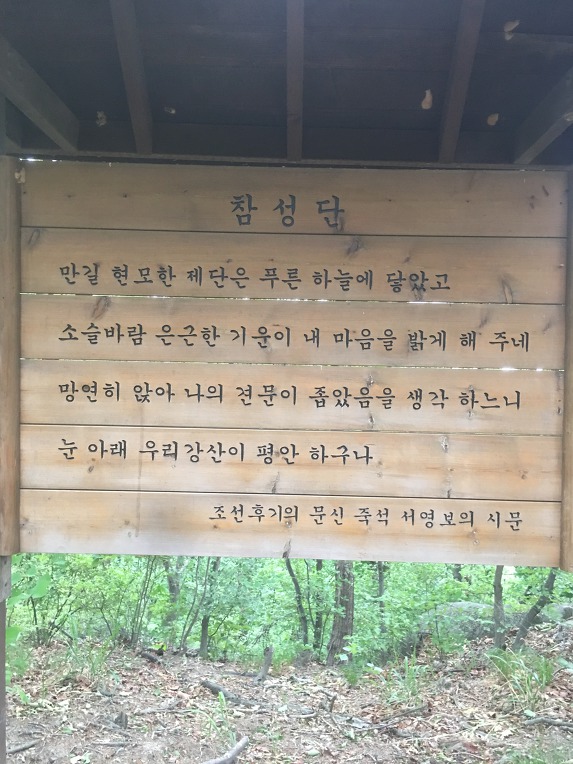 참성단
만길 현모한 제단은 푸른 하늘에 닿았고
소슬바람 은근한 기운이 내 마음을 밝게 해 주네
망연히 앉아 나의 견문이 좁았음을 생각 하느니
눈 아래 우리강산이 평안 하구나
조선후기의 문신 죽석 서영보의 시문